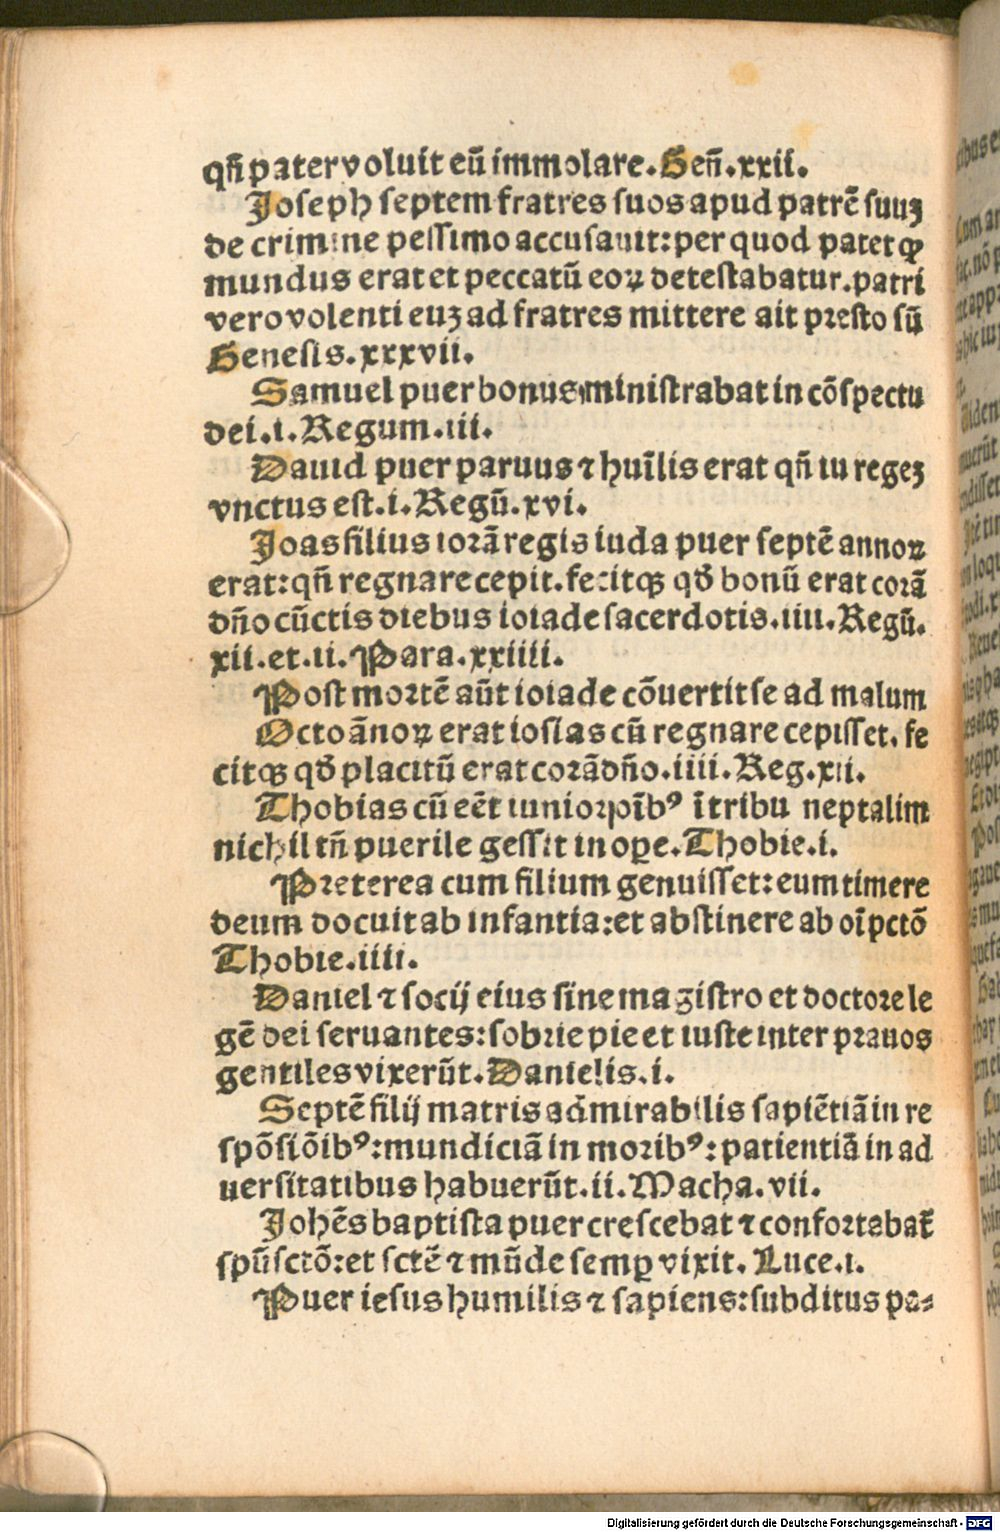 qñ pater voluit eū immolare. Geñ. xxii.
Joseph septem fratres suos apud patrē suuꝫ
de crimine pessimo accusauit: per quod patet ꝙ
mundus erat et peccatū eoꝝ detestabatur. patri
vero volenti euꝫ ad fratres mittere ait presto sū
Genesis. xxxvii.
Samuel puer bonus ministrabat in cōspectu
dei. i. Regum. iii.
Dauid puer paruus ⁊ hūilis erat qñ in regeꝫ
vnctus est. i. Regū. xvi.
Joas filius iorā regis iuda puer septē annoꝝ
erat: qñ regnare cepit. fecitqꝫ qđ bonū erat corā
dño cūctis diebus ioiade sacerdotis. iiii. Regū.
xii. et. ii. Para. xxiiii.
Post mortē aūt ioiade cōuertit se ad malum
Octo ānoꝝ erat iosias cū regnare cepisset. fe
citqꝫ qđ placitū erat corā dño. iiii. Reg. xii.
Thobias cū eēt iunior oīb⁹ ī tribu neptalim
nichil tñ puerile gessit in oꝑe. Thobie. i.
Preterea cum filium genuisset: eum timere
deum docuit ab infantia: et abstinere ab oī pctō
Thobie. iiii.
Daniel ⁊ socij eius sine magistro et doctore le
gē dei seruantes: sobrie pie et iuste inter prauos
gentiles vixerūt. Danielis. i.
Septē filij matris admirabilis sapiētiā in re
spōsiōib⁹: mundiciā in morib⁹: patientiā in ad
uersitatibus habuerūt. ii. Macha. vii.
Johēs baptista puer crescebat ⁊ confortabat᷑
spū sctō: et sctē ⁊ mūde semꝑ vixit. Luce. i.
Puer iesus humilis ⁊ sapiens: subditus pa⸗
Digitalisierung gefördert durch die Deutsche Forschungsgemeinschaft - DFG